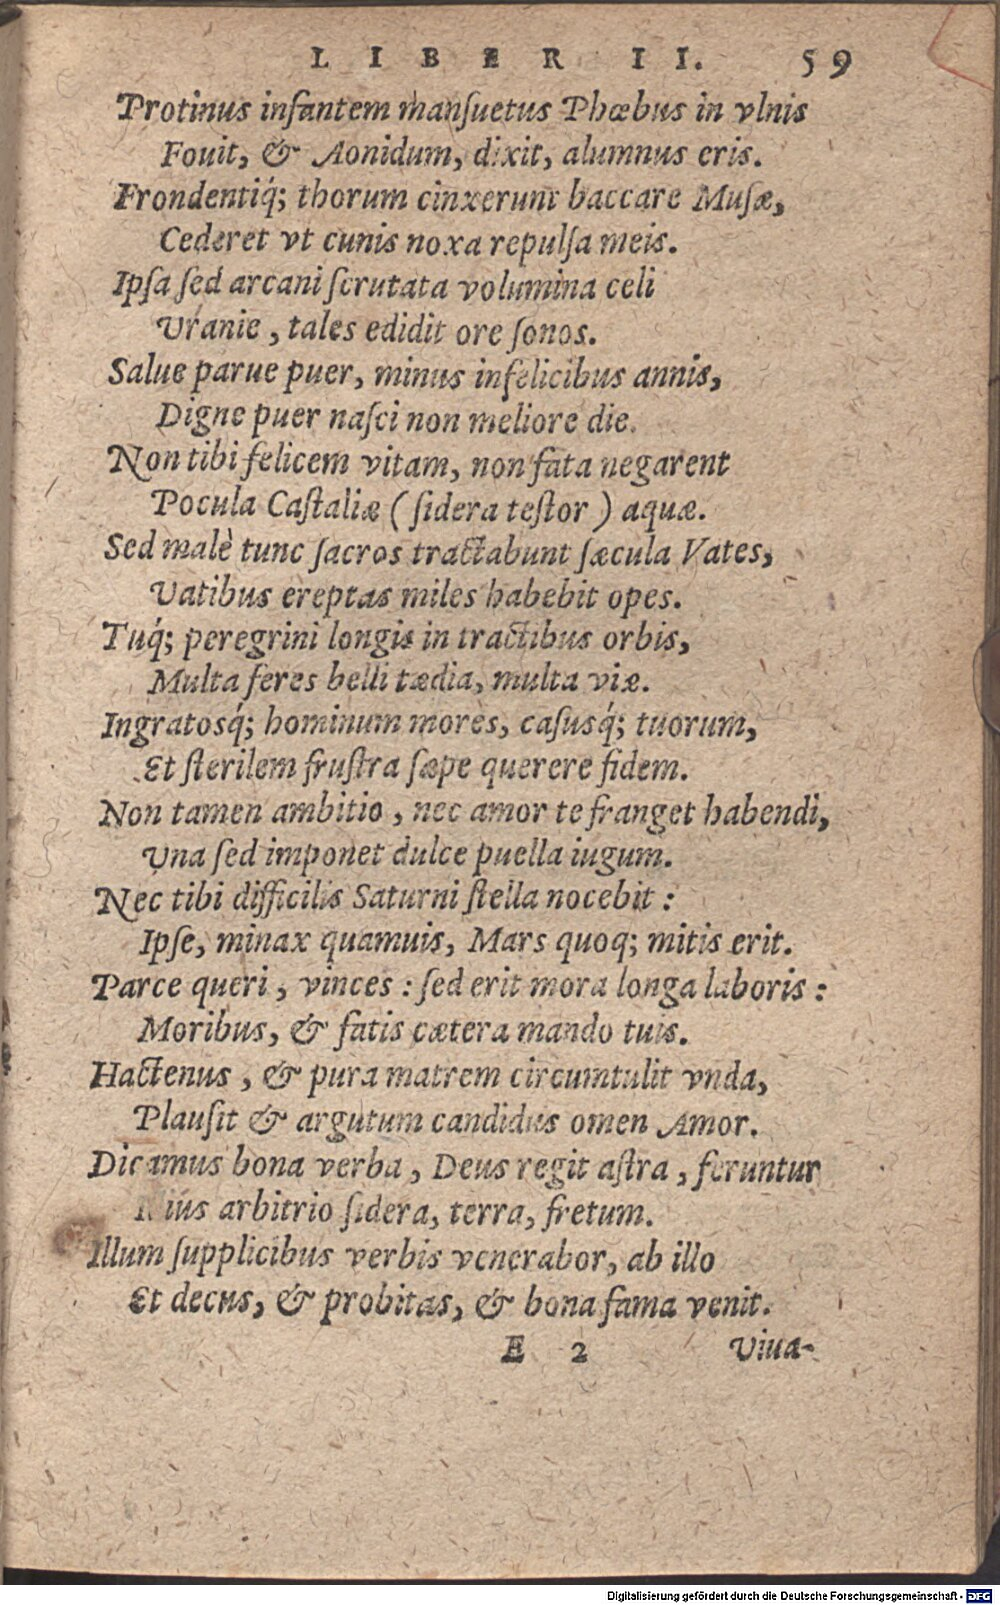 LIBER II. 59
Protinus infantem manſuetus Phœbus in vlnis
Fouit, & Aonidum, dixit, alumnus eris.
Frondentiq́; thorum cinxerunt baccare Muſæ,
Cederet vt cunis noxa repulſa meis.
Ipſa ſed arcani ſcrutata volumina celi
Vranie, tales edidit ore ſonos.
Salue parue puer, minus infelicibus annis,
Digne puer naſci non meliore die.
Non tibi felicem vitam, non fata negarent
Pocula Caſtaliæ (ſidera teſtor) aquæ.
Sed malè tunc ſacros tractabunt ſæcula Vates,
Vatibus ereptas miles habebit opes.
Tuq́; peregrini longis in tractibus orbis,
Multa feres belli tædia, multa viæ.
Ingratosq́; hominum mores, caſusq́; tuorum,
Et ſterilem fruſtra ſæpe querere fidem.
Non tamen ambitio, nec amor te franget habendi,
Vna ſed imponet dulce puella iugum.
Nec tibi difficilis Saturni ſtella nocebit:
Ipſe, minax quamuis, Mars quoq; mitis erit.
Parce queri, vinces: ſed erit mora longa laboris:
Moribus, & fatis cætera mando tuis.
Hactenus, & pura matrem circumtulit vnda,
Plauſit & argutum candidus omen Amor.
Dicamus bona verba, Deus regit aſtra, feruntur
arbitrio ſidera, terra, fretum.
Illum ſupplicibus verbis venerabor, ab illo
Et decus, & probitas, & bona fama venit.
E 2 Viua-
Digitalisierung gefördert durch die Deutsche Forschungsgemeinschaft - DFG